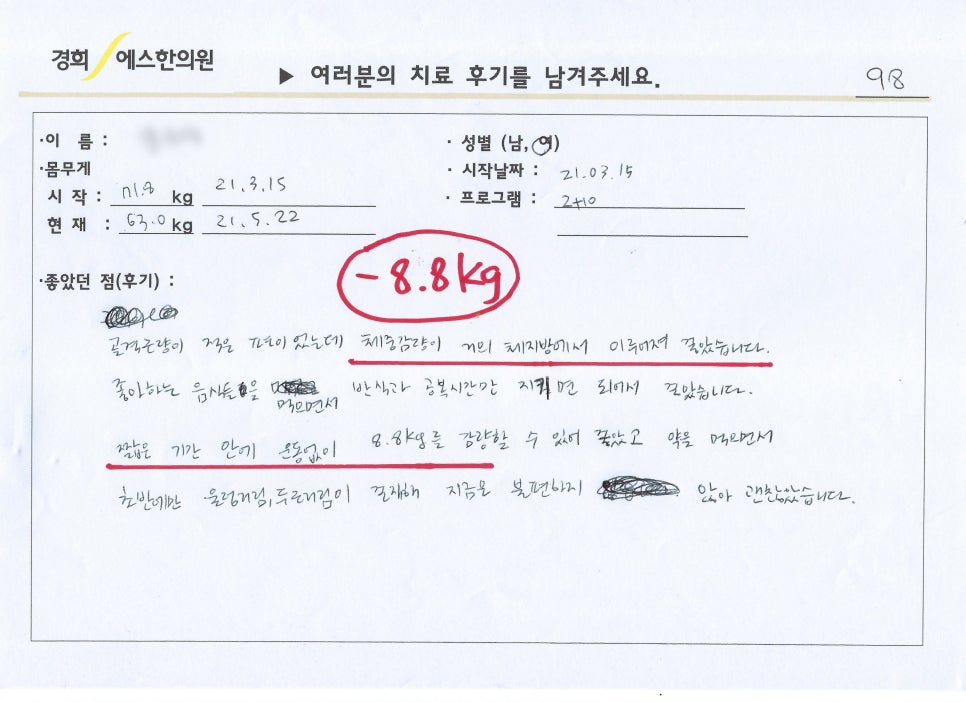 경희 에스한의원
▶ 여러분의 치료 후기를 남겨주세요.
98
·이 름 :
· 성별 (남, 여)
·몸무게
· 시작날짜 : 21.03.15
시 작 : 71.8 kg 21.3.15
· 프로그램 : 2+10
현 재 : 63.0 kg 21.5.22
-8.8kg
·좋았던 점(후기) :
골격근량이 적은 편이었는데 체중감량이 거의 체지방에서 이루어져 좋았습니다.
좋아하는 음식들을 먹으면서 반식과 공복시간만 지키면 되어서 좋았습니다.
짧은 기간 안에 운동없이 8.8kg를 감량할 수 있어 좋았고 약을 먹으면서
초반에만 울렁거림, 두근거림이 존재해 지금은 불편하지 않아 괜찮았습니다.